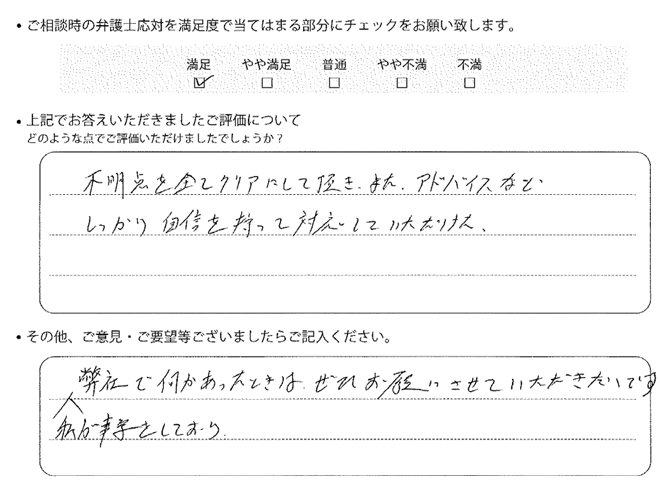 • ご相談時の弁護士応対を満足度で当てはまる部分にチェックをお願い致します。
満足 やや満足 普通 やや不満 不満
• 上記でお答えいただきましたご評価について
どのような点でご評価いただけましたでしょうか？
不明点を全てクリアにして頂き、また、アドバイスなど
しっかり自信を持って対応していただけた、
• その他、ご意見・ご要望等ございましたらご記入ください。
弊社で何かあったときは、ぜひお願いさせていただきたいです
私が事業をしており、